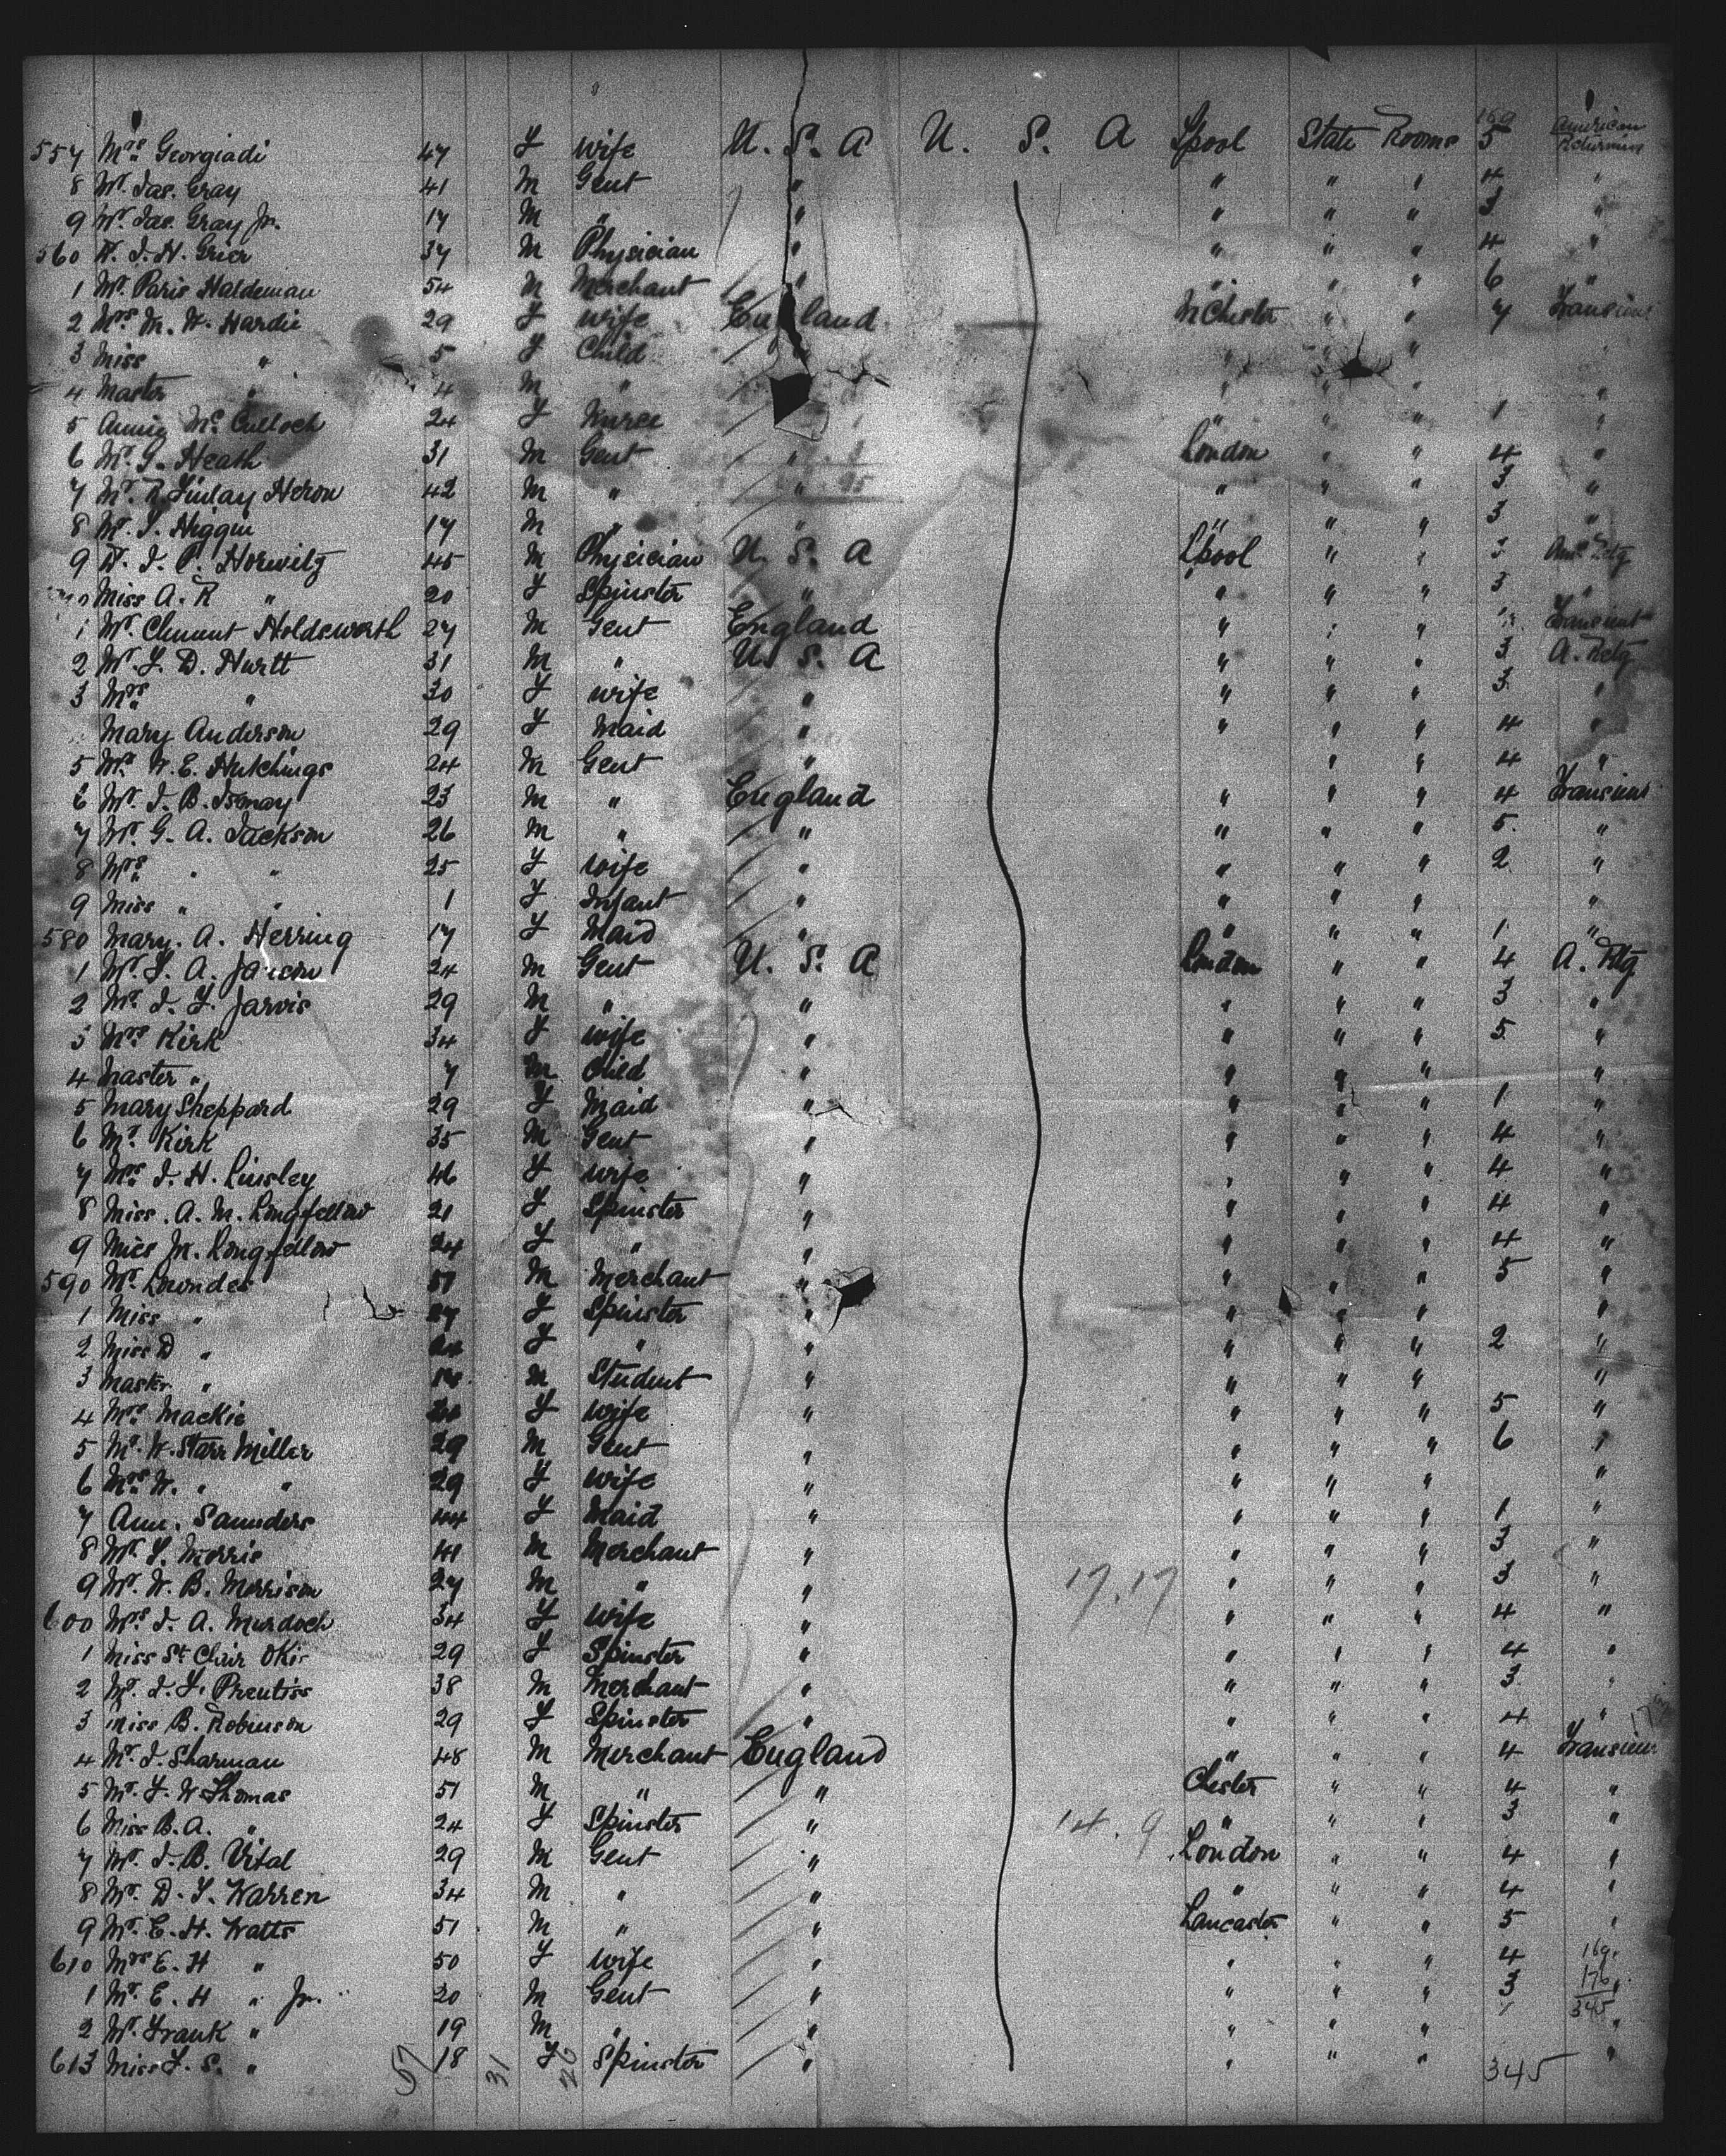 557 Mrs Georgiadi 47 F wife U. S. A U. S. A L'pool State Rooms 5 American Returning
8 Mr. Jas. Gray 41 M Gent " " " " 4 "
9 Mr. Jas. Gray Jr. 17 M " " " " " 3 "
560 Dr. J. H. Grier 37 M Physician " " " " 4 "
1 Mr. Paris Haldeman 54 M Merchant " " " " 6 "
2 Mrs M. W. Hardie 29 F wife England M'Chester " " 7 Transient
3 Miss " 5 F Child " " " " "
4 Master " 4 M " " " " " "
5 Annie Mc Culloch 24 F Nurse " " " " 1 "
6 Mr. G. Heath 31 M Gent " London " " 4 "
7 Mr. R. Finlay Heron 42 M " " " " " 3 "
8 Mr. J. Higgin 17 M " " " " " 3 "
9 Dr. J. P. Horwitz 45 M Physician U. S. A L'pool " " 3 Am. Retg
Miss A. R " 20 F Spinster " " " " 3 "
1 Mr. Clement Holdsworth 27 M Gent England " " " Transient
2 Mr. F. D. Hurtt 31 M " U. S. A " " " 3 A. Retg
3 Mrs " 30 F wife " " " " 3 "
Mary Anderson 29 F Maid " " " " 4 "
5 Mr. W. E. Hutchings 24 M Gent " " " 4 "
6 Mr. J. B. Ismay 23 M " England " " " 4 Transient
7 Mr. G. A. Jackson 26 M " " " " " 5 "
8 Mrs " " 25 F wife " " " " 2 "
9 Miss " " 1 F Infant " " " " "
580 Mary. A. Herring 17 F Maid " " " " 1 "
1 Mr. F. A. 24 M Gent U. S. A London " " 4 A. Rtg
2 Mr. J. F. Jarvis 29 M " " " " " 3 "
3 Mrs Kirk 34 F wife " " " " 5 "
4 Master " 7 M Child " " " " "
5 Mary Sheppard 29 F Maid " " " " 1 "
6 Mr. Kirk 35 M Gent " " " " 4 "
7 Mrs J. H. Linsley 46 F wife " " " " 4 "
8 Miss. A. M. Longfellow 21 F Spinster " " " " 4 "
9 Miss Longfellow 24 F " " " " " 4 "
590 Mr. Lowndes 51 M Merchant " " " " 5 "
1 Miss " F Spinster " " " " "
2 Miss D " F " " " " " 2 "
3 Mastr. " M Student " " " " "
4 Mrs Mackie F wife " " " " 5 "
5 Mr. W. Starr Miller 29 M Gent " " " " 6 "
6 Mrs W. " " 29 F wife " " " " "
7 Ann. Saunders 44 F Maid " " " " 1 "
8 Mr. F. Morris 41 M Merchant " " " " 3 "
9 Mr. W. B. Morrison 27 M " " 17.17 " " " 3 "
600 Mrs J. A. Murdoch 34 F wife " " " " 4 "
1 Miss St Clair Okie 29 F Spinster " " " " 4 "
2 Mr. J. F. Prentiss 38 M Merchant " " " " 3 "
3 Miss B. Robinson 29 F Spinster " " " " 4 "
4 Mr. J. Sharman 48 M Merchant England " " " 4 Transient
5 Mr. F. W Thomas 51 M " " Chester " " 4 "
6 Miss B. A. " 24 F Spinster " 14.9 " " " 3 "
7 Mr. J. B. Vital 29 M Gent " London " " 4 "
8 Mr. D. F. Warren 34 M " " " " " 4 "
9 Mr. E. H. Watts 51 M " " Lancaster " " 5 "
610 Mrs E. H " 50 F wife " " " " 4 169
1 Mr. E. H " Jr. 20 M Gent " " " " 3 176 "
2 Mr. Frank " 19 M " " " " " 345 "
613 Miss F. S. " 57 18 31 F 26 Spinster " " " " 345 "